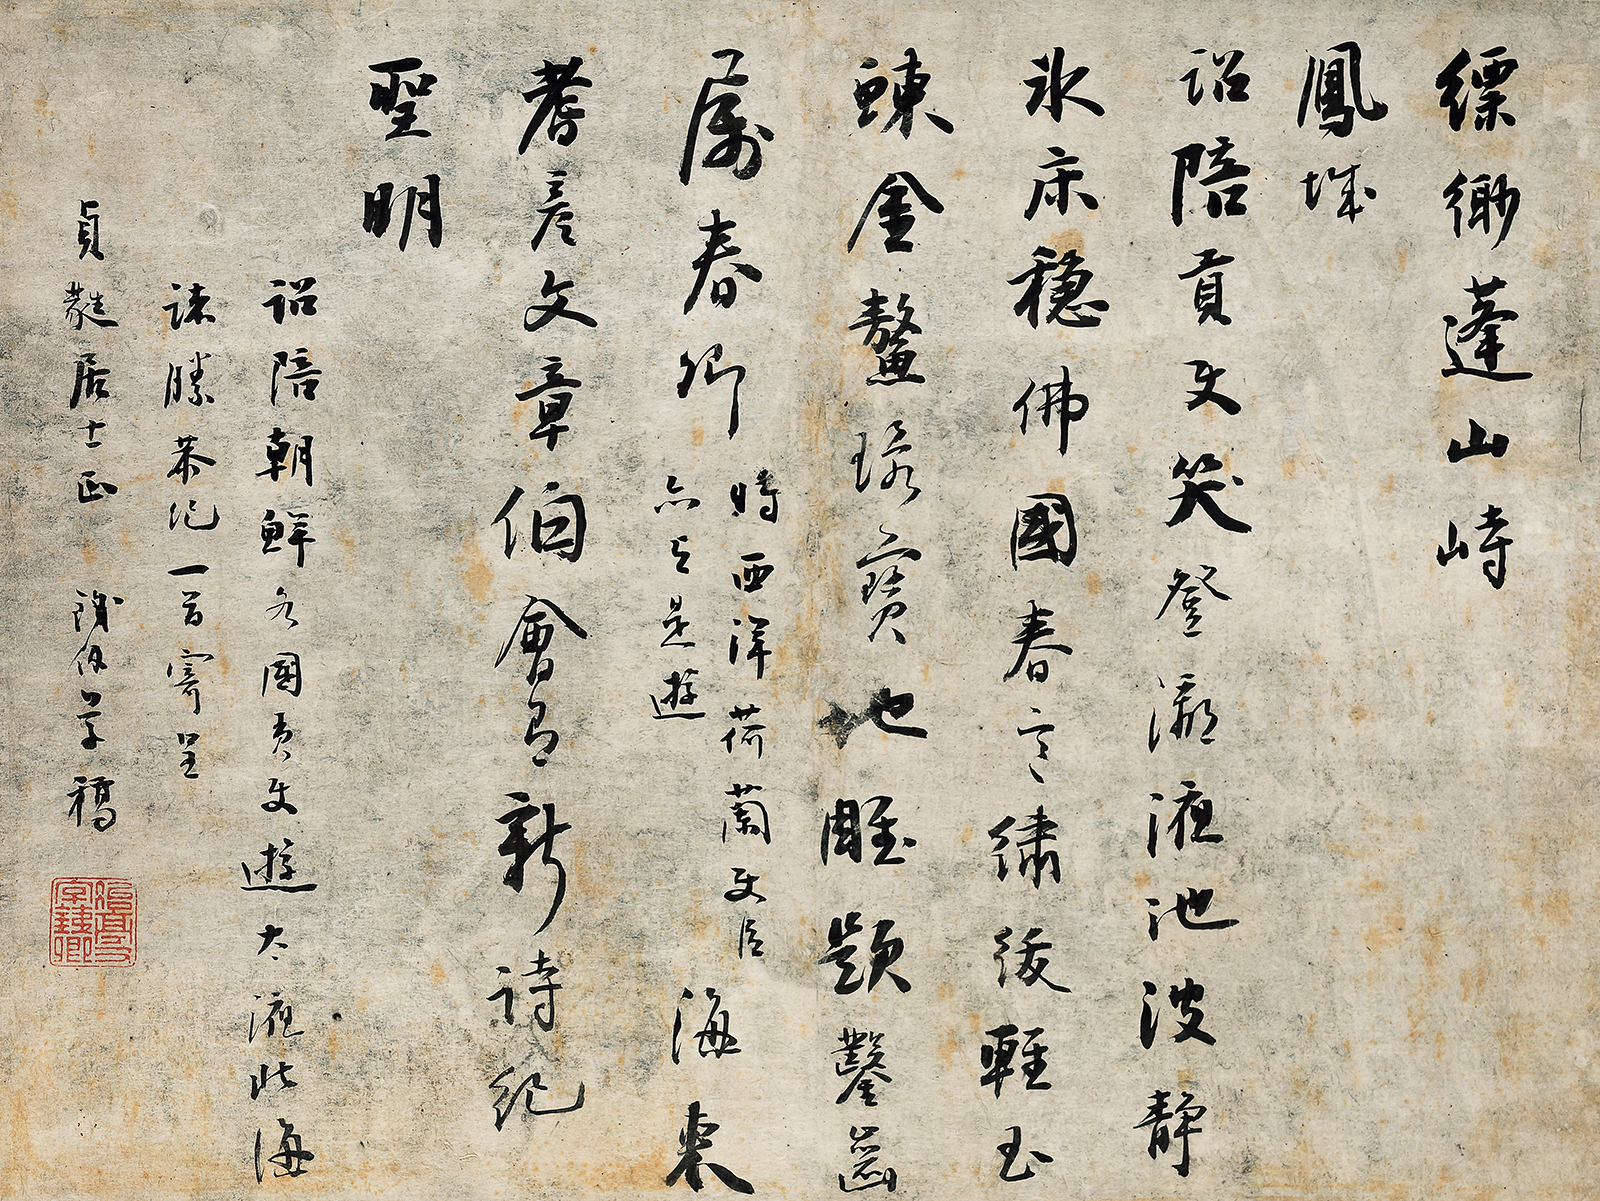 縹緲蓬山峙
鳳城
詔陪貢使笑登瀛液池波靜
氷床穩佛國春繡綬輕玉
蝀金鰲寶地雕題鑿齒
屬春卿
時西洋荷蘭使臣
亦与是遊
海表
耆彥文章伯會有新詩紀
聖明
詔陪朝鮮各國貢使遊太液北海
諸勝恭紀一首寄呈
貞蕤居士正 鐵保草稿